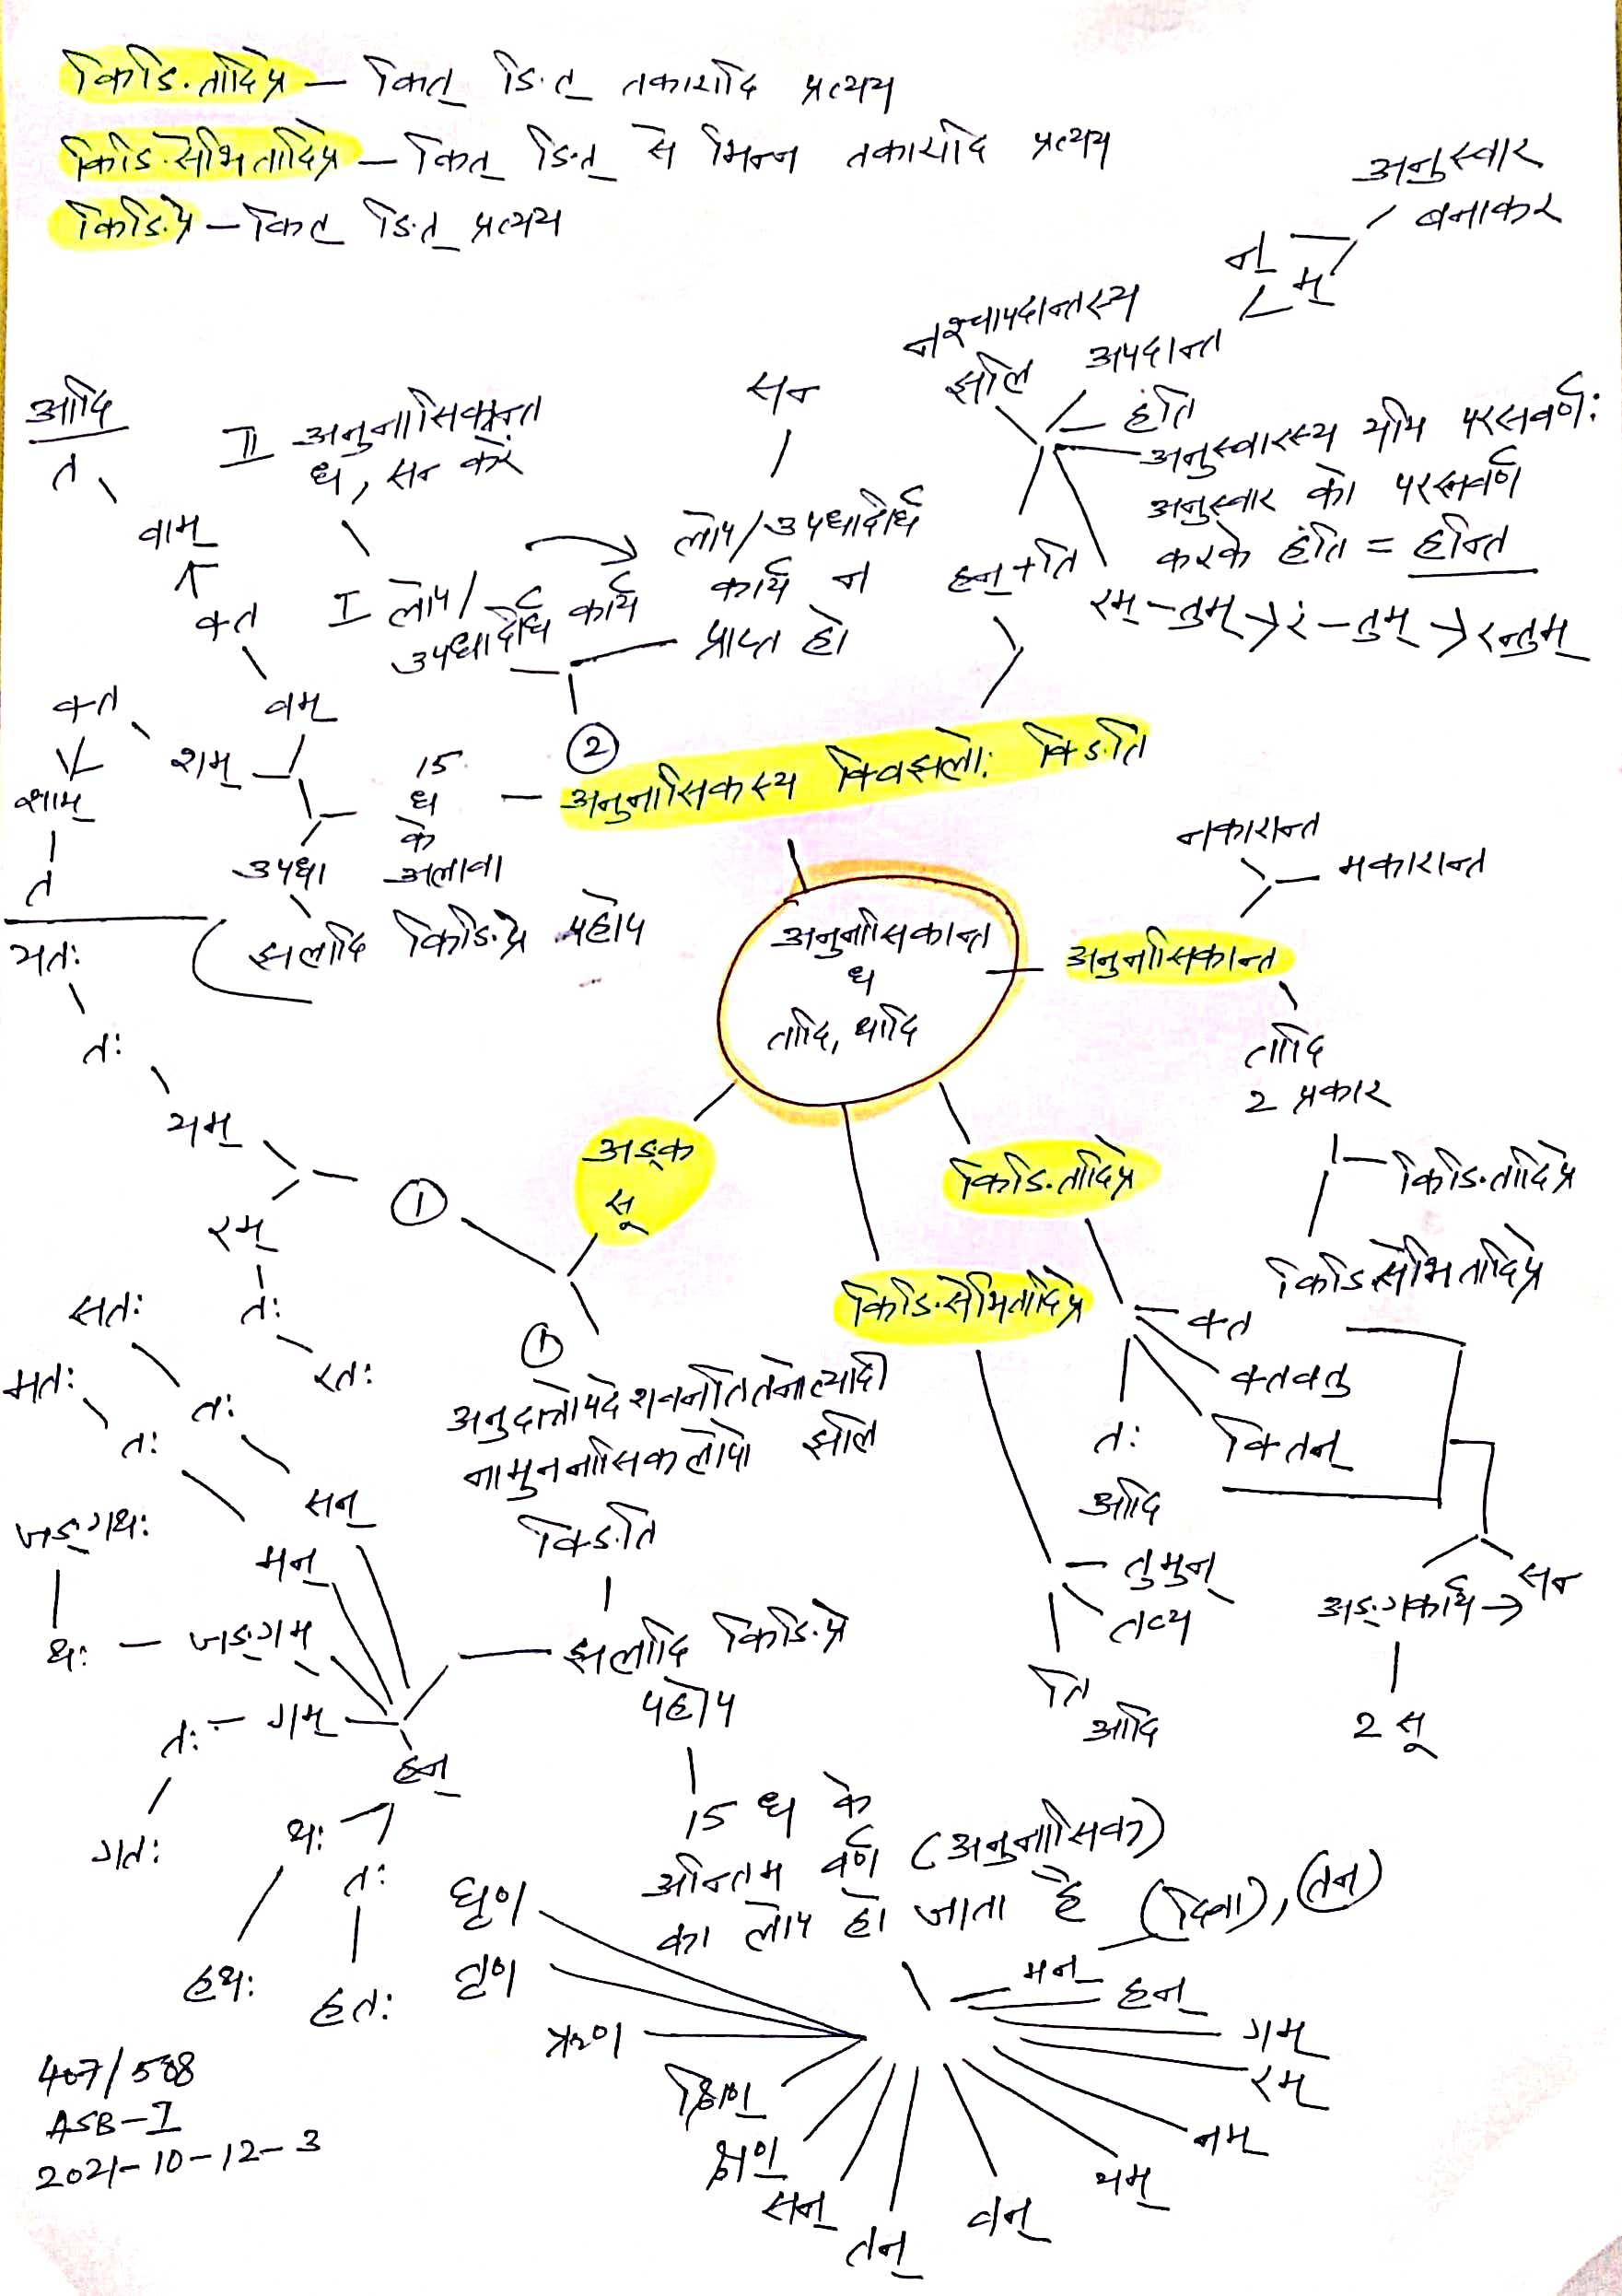 किङि.तादिप्र – कित् ङि.त् तकारादि प्रत्यय
किङि.सेभितादिप्र – कित् ङित् से भिन्न तकारादि प्रत्यय
किङि.प्रे – कित् ङि.त् प्रत्यय
अनुस्वार
बनाकर
न्
म्
नश्चापदान्तस्य
झलि
अपदान्त
हंति
अनुस्वारस्य ययि परसवर्णः
अनुस्वार को परसवर्ण
करके हंति = हन्ति
रम् – तुम् → रं – तुम् → रन्तुम्
हन् + ति
सन
लोप/उपधादीर्घ
कार्य न
प्राप्त हो
II अनुनासिकान्त
ध, सन करें
I लोप/
उपधादीर्घ कार्य
आदि
त
वाम्
क्त
वम्
क्त
शम्
शाम्
त
उपधा
15
ध
के
अलावा
झलादि किङि.प्रे पहोप
2
अनुनासिकस्य क्विझलोः क्ङिति
अनुनासिकान्त
ध
तादि, थादि
नकारान्त
मकारान्त
अनुनासिकान्त
तादि
2 प्रकार
किङि.तादिप्र
किङिसेभितादिप्र
यतः
तः
यम्
रम्
तः
रतः
1
अङ्क
सू
1
किङि.तादिप्र
किङि.सेभितादिप्र
क्त
क्तवतु
क्तिन्
तः
आदि
तुमुन्
तव्य
ति
आदि
अङ्गकार्य → सन
2 सू
अनुदात्तोपदेशवनतितनोत्यादी
नामुनासिकलोपो झलि
क्ङिति
झलादि किङि.प्रे
पहोप
15 ध के
अन्तिम वर्ण (अनुनासिक)
का लोप हो जाता है
सतः
तः
सन्
मतः
तः
मन्
जङ्गथः
थः – जङ्गम्
तः – गम्
गतः
हन्
थः
तः
हथः
हतः
घृण
तृण
ऋण
क्षिण्
क्षण्
सन्
तन्
वन्
यम्
नम्
रम्
गम्
हन्
मन् (दिवा), (तन)
407/508
ASB–I
2021–10–12–3